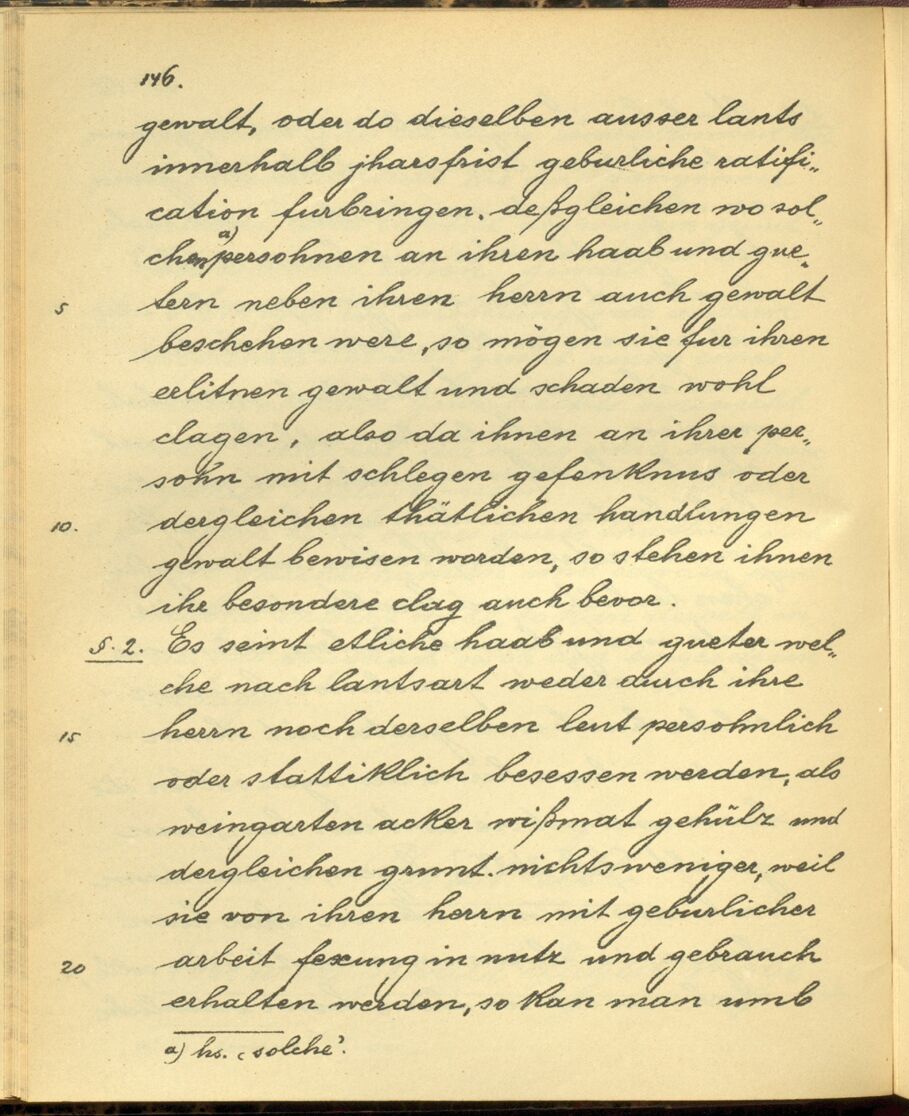 146.
gewalt, oder do dieselben ausser lants
innerhalb jharsfrist geburliche ratifi„
cation furbringen. deßgleichen wo sol„
chen a) persohnen an ihren haab und gue„
5 tern neben ihren herrn auch gewalt
beschehen were, so mögen sie fur ihren
erlitnen gewalt und schaden wohl
clagen, also da ihnen an ihrer per„
sohn mit schlegen gefenknus oder
10. dergleichen thätlichen handlungen
gewalt bewisen worden, so stehen ihnen
ihr besondere clag auch bevor.
§. 2. Es seint etliche haab und gueter wel„
che nach lantsart weder durch ihre
15 herrn noch derselben leut persohnlich
oder stattiklich besessen werden, als
weingarten acker wißmat gehülz und
dergleichen grunt. nichtsweniger, weil
sie von ihren herrn mit geburlicher
20 arbeit fexung in nutz und gebrauch
erhalten werden, so kan man umb
a) hs. ‚solche'.